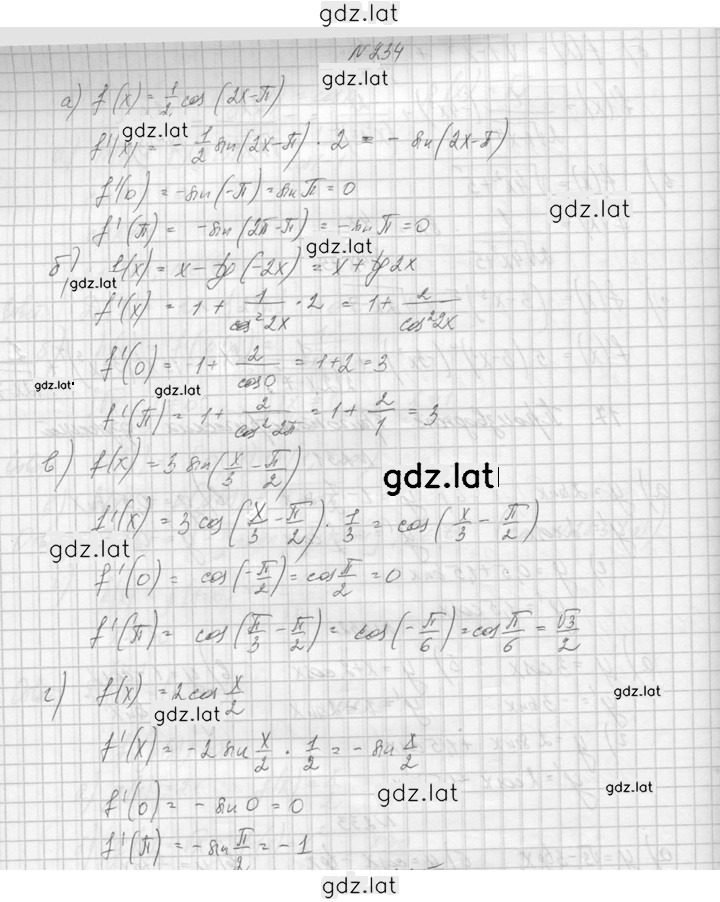 gdz.lat
N 234
gdz.lat
а) f(x) = 1/2 cos(2x-π)
gdz.lat
f'(x) = - 1/2 sin(2x-π) · 2 = - sin(2x-π)
f'(0) = -sin(-π) = sin π = 0
gdz.lat
f'(π) = -sin(2π-π) = -sin π = 0
gdz.lat
б) f(x) = x - tg(-2x) = x + tg2x
gdz.lat
f'(x) = 1 + 1/cos²2x · 2 = 1 + 2/cos²2x
f'(0) = 1 + 2/cos0 = 1+2 = 3
gdz.lat gdz.lat
f'(π) = 1 + 2/cos²2π = 1 + 2/1 = 3
в) f(x) = 3 sin(x/3 - π/2)
gdz.lat
f'(x) = 3 cos(x/3 - π/2) · 1/3 = cos(x/3 - π/2)
gdz.lat
f'(0) = cos(-π/2) = cos π/2 = 0
f'(π) = cos(π/3 - π/2) = cos(-π/6) = cos π/6 = √3/2
г) f(x) = 2 cos x/2
gdz.lat
gdz.lat
f'(x) = -2 sin x/2 · 1/2 = - sin x/2
gdz.lat gdz.lat
f'(0) = - sin 0 = 0
f'(π) = - sin π/2 = -1
gdz.lat